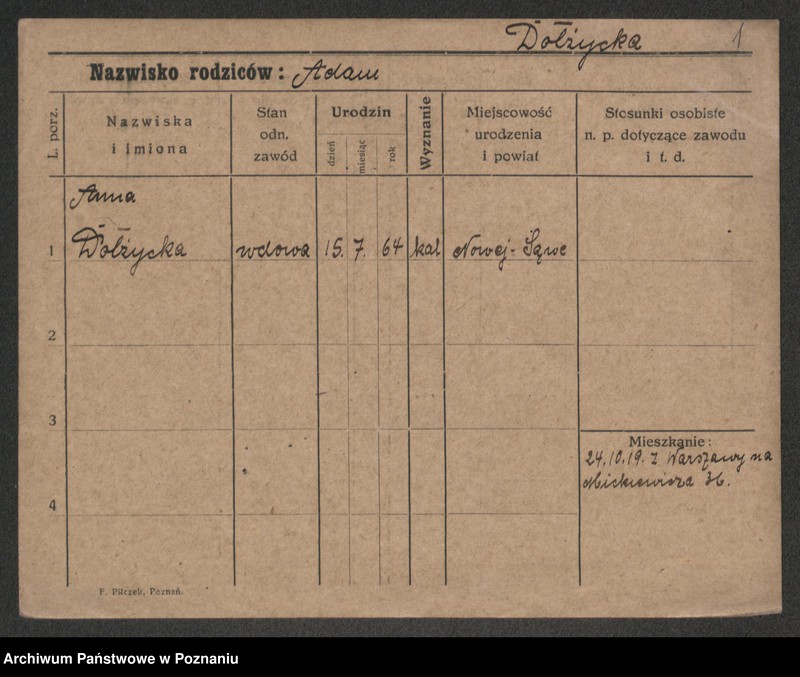 Dołżycka 1
Nazwisko rodziców: Adam
L. porz.
Nazwiska i imiona
Stan odn. zawód
Urodzin
dzień
miesiąc
rok
Wyznanie
Miejscowość urodzenia i powiat
Stosunki osobiste n. p. dotyczące zawodu i t. d.
Anna
1 Dołżycka wdowa 15. 7. 64 kat Nowej-Sącze
2
3
Mieszkanie:
24.10.19. z Warszawy na
Mickiewicza 36.
4
F. Pilczek, Poznań.
Archiwum Państwowe w Poznaniu